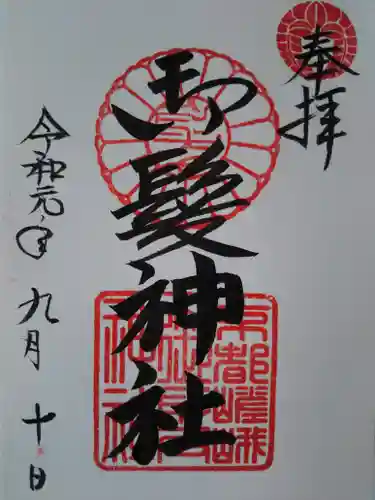 奉拝
御髪神社
京都嵯峨
御髪神社
令和元年九月十日